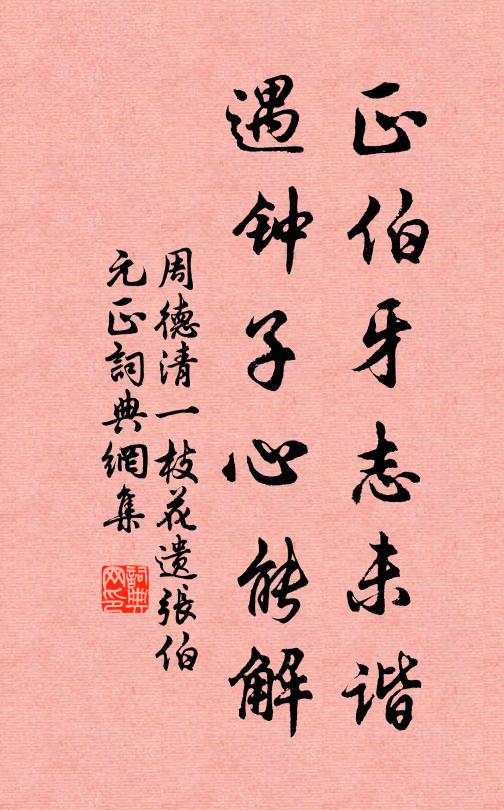 正伯牙志未谐
遇钟子心能解
周德清一枝花遗張伯
元正詞典網集
詞典
网印